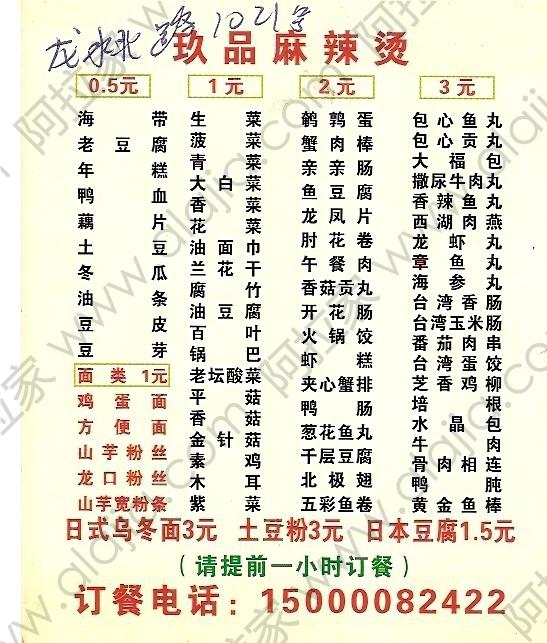 龙水北路1021号
玖品麻辣烫
0.5元
海带
老豆腐
年糕
鸭血
藕片
土豆
冬瓜
油条
豆皮
豆芽
面类 1元
鸡蛋面
方便面
山芋粉丝
龙口粉丝
山芋宽粉条
1元
生菜
菠菜
青菜
大白菜
香菜
花菜
油面巾
兰花干
腐竹
油豆腐
百叶
锅巴
老坛酸菜
平菇
香菇
金针菇
素鸡
木耳
紫菜
2元
鹌鹑蛋
蟹肉棒
亲亲肠
鱼豆腐
龙凤片
肘花卷
午餐肉
香菇贡丸
开花肠
火锅饺
虾糕
夹心蟹排
鸭肠
葱花鱼丸
千层豆腐
北极翅
五彩鱼卷
3元
包心鱼丸
包心贡丸
大福包
撒尿牛肉丸
香辣鱼丸
西湖肉燕
龙虾丸
章鱼丸
海参丸
台湾香肠
台湾玉米肠
番茄肉串
台湾蛋饺
芝香鸡柳
培根
水晶包
牛肉
骨肉相连
鸭肫
黄金鱼棒
日式乌冬面3元 土豆粉3元 日本豆腐1.5元
（请提前一小时订餐）
订餐电话：15000082422
阿拉家 www.alajia.com